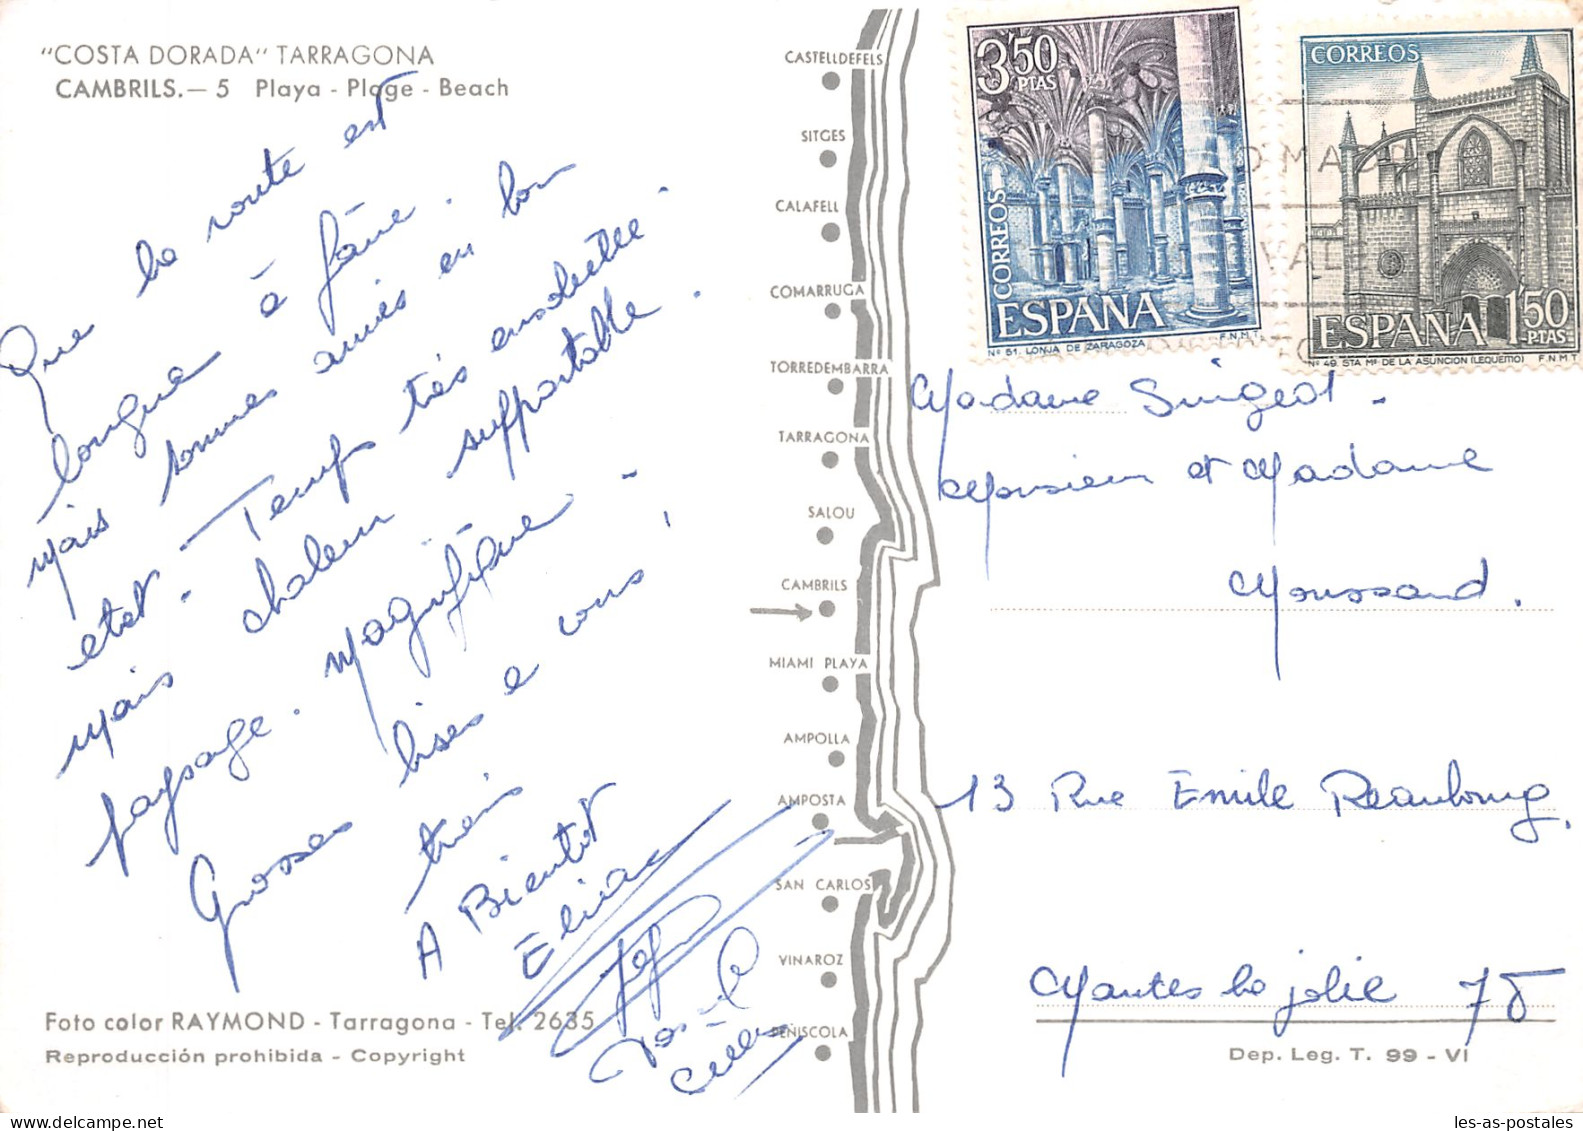 "COSTA DORADA" TARRAGONA
CAMBRILS.— 5 Playa - Plage - Beach
Que la route est
longue à faire.
Mais sommes arrivés en bon
état - Temps très ensoleillé.
Mais chaleur supportable.
paysage. Magnifique -
Grosses bises a vous
trois !
A Bientot
Eliane
Pascal
Foto color RAYMOND - Tarragona - Tel. 2635
Reproducción prohibida - Copyright
CASTELLDEFELS
SITGES
CALAFELL
COMARRUGA
TORREDEMBARRA
TARRAGONA
SALOU
CAMBRILS
MIAMI PLAYA
AMPOLLA
AMPOSTA
SAN CARLOS
VINAROZ
PEÑISCOLA
3'50 PTAS
CORREOS
ESPAÑA
Nº 51. LONJA DE ZARAGOZA F.N.M.T.
CORREOS
ESPAÑA 1'50 PTAS
Nº 49. STA Mª DE LA ASUNCION (LEQUEITIO) F.N.M.T
Madame Suigeot -
Monsieur et Madame
Moussard.
13 Rue Emile Reaubourg,
Mantes la jolie 78
Dep. Leg. T. 99 - VI
les-as-postales